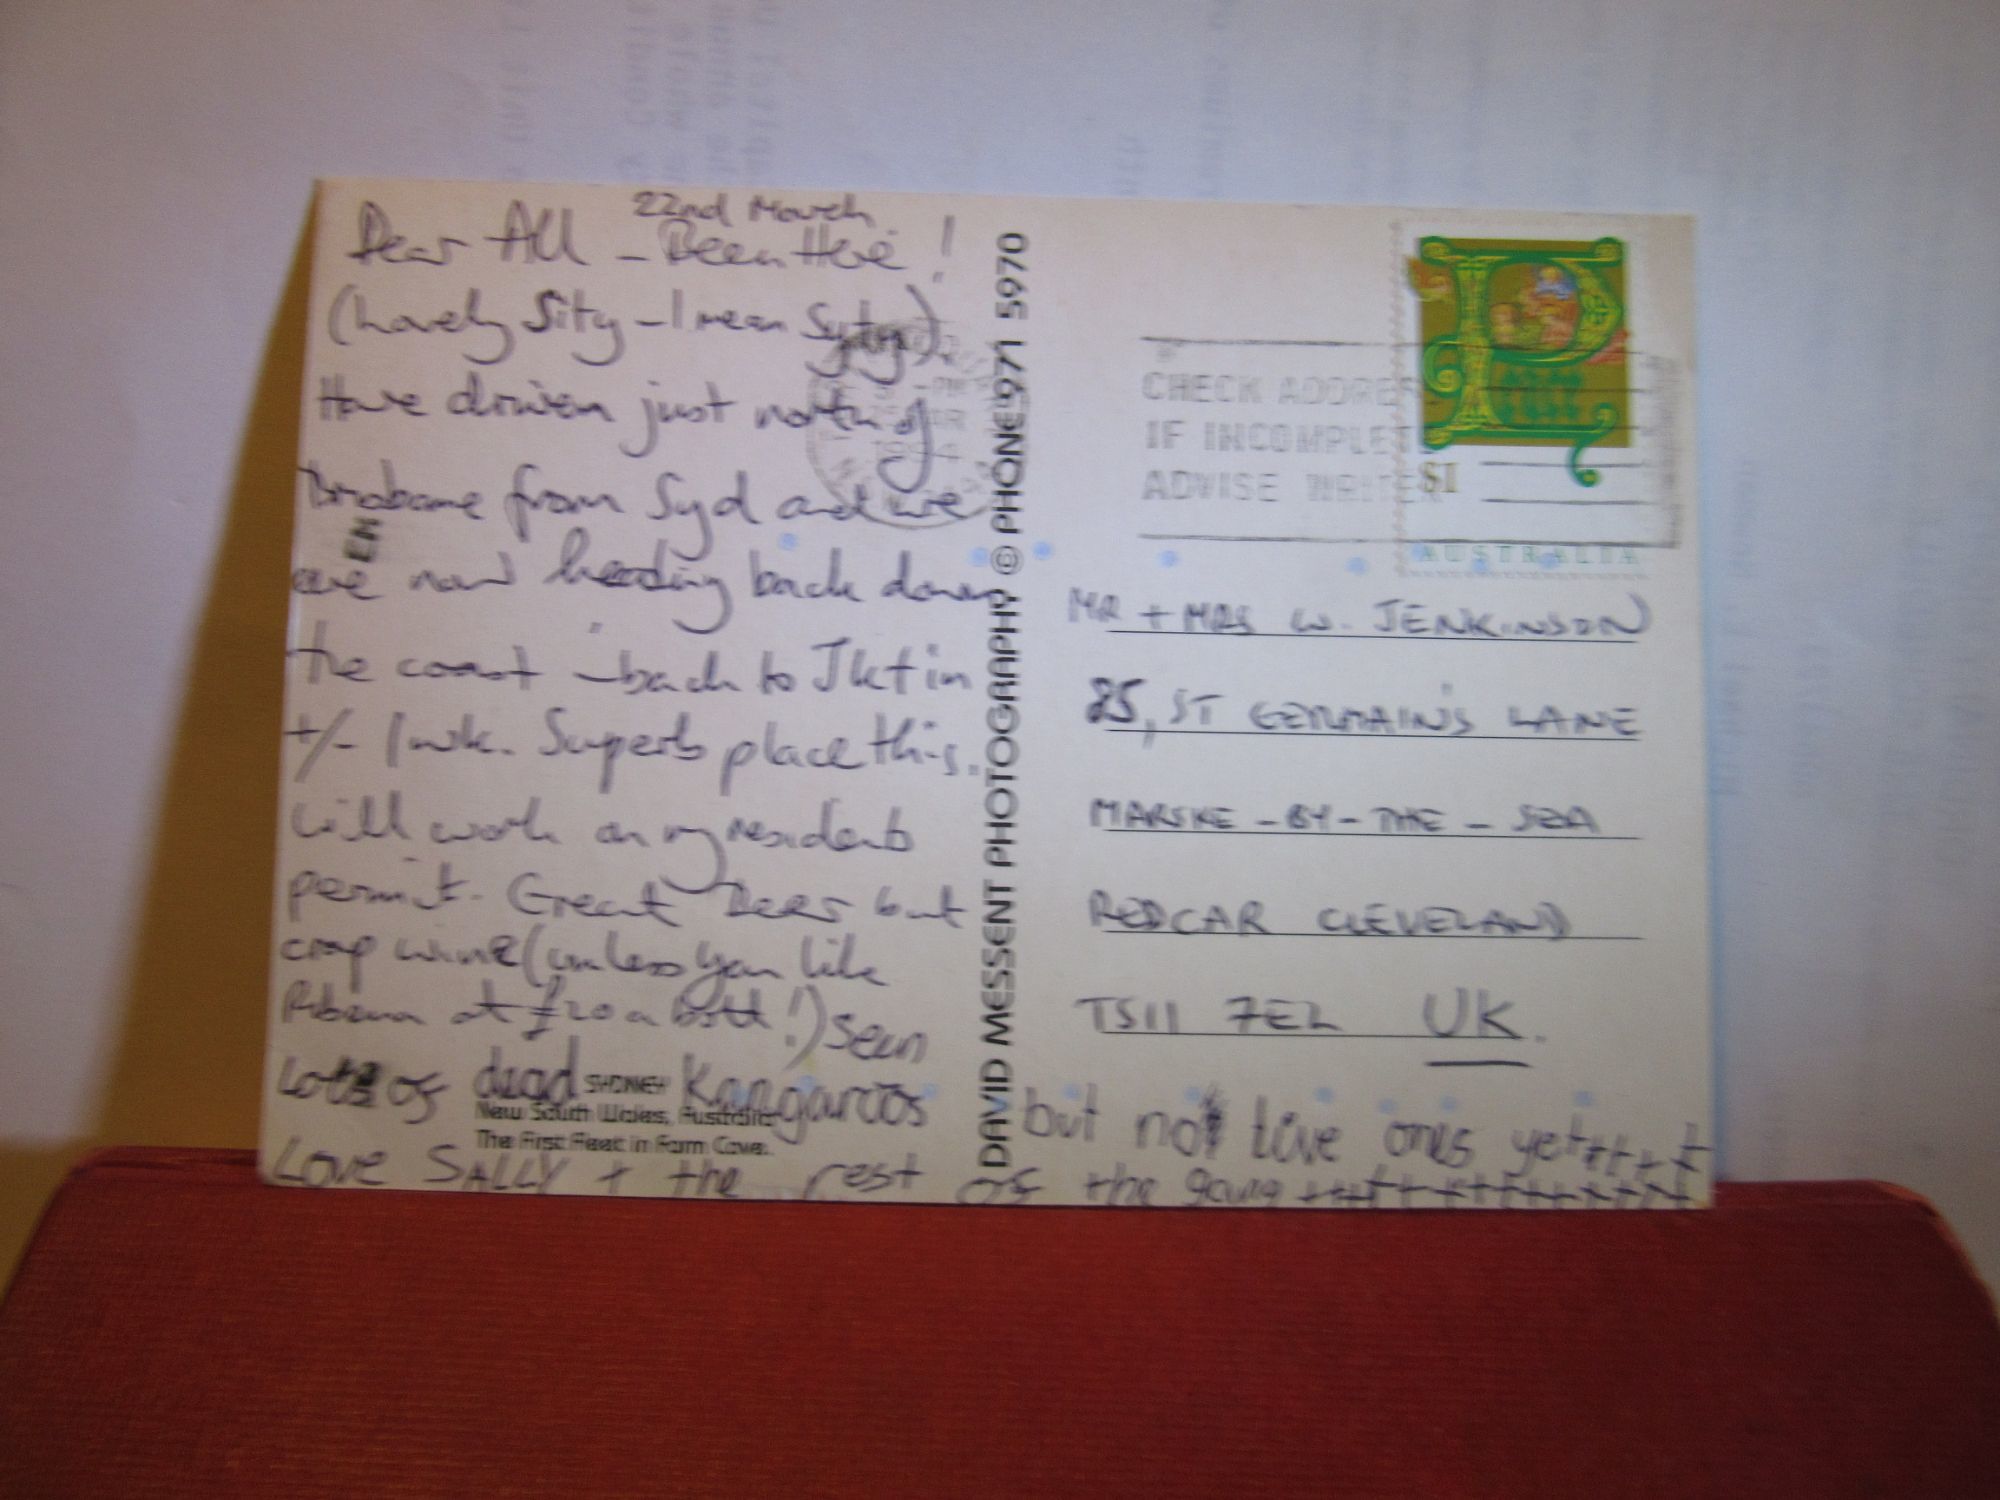 22nd March
Dear All - Been Here!
(Lovely Sity - I mean Syty).
Have driven just north of
Brisbane from Syd and we
are now heading back down
the coast - back to Jkt in
+/- 1 wk. Superb place this.
Will work on my residents
permit. Great Beer but
crap wine (unless you like
Ribena at £20 a bott!) Seen
Lots of dead Kangaroos but not live ones yet ++++
Love SALLY + the rest of the gang
SYDNEY
New South Wales, Australia
The First Fleet in Farm Cove.
DAVID MESSENT PHOTOGRAPHY © PHONE 971 5970
CHECK ADDRES
IF INCOMPLETE
ADVISE WRITER
$1
AUSTRALIA
MR + MRS W. JENKINSON
85, ST GERMAIN'S LANE
MARSKE-BY-THE-SEA
REDCAR CLEVELAND
TS11 7EL UK.